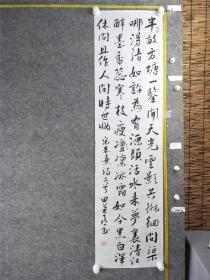 半畝方塘一鑒開天光雲影共徘徊問渠
哪得清如許為有源頭活水來夢裏清江
醉墨香蕊寒枝瘦凜冰霜如今黑白渾
休問且作人間時世妝 宋朱熹詩二首 田